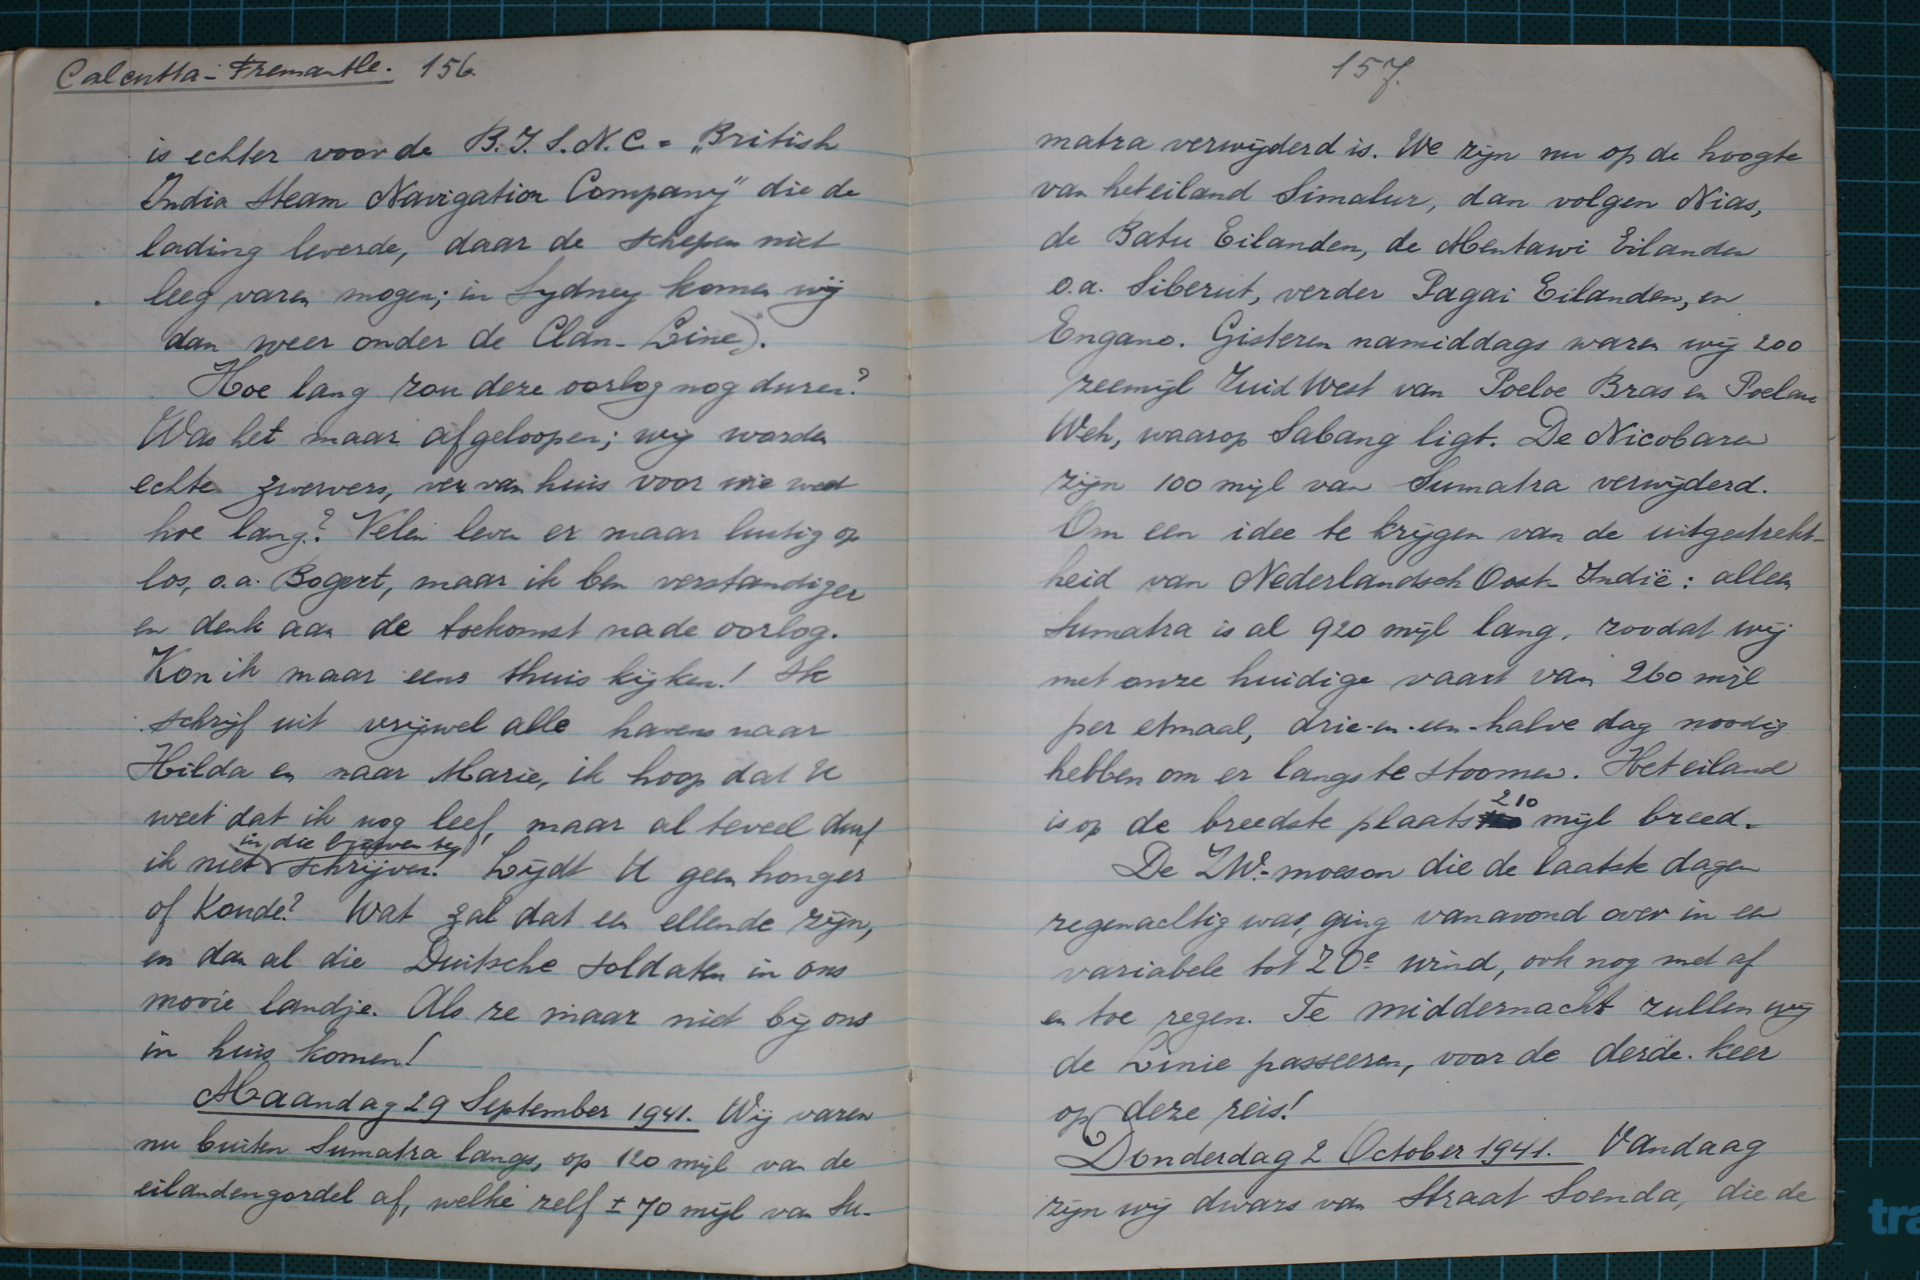 Calcutta - Fremantle. 156
is echter voor de B.I.S.N.C. = „British
India Steam Navigation Company" die de
lading leverde, daar de schepen niet
leeg varen mogen; in Sydney komen wij
dan weer onder de Clan-Line).
Hoe lang zou deze oorlog nog duren?
Was het maar afgeloopen; wij worden
echte zwervers, ver van huis voor wie weet
hoe lang? Velen leven er maar lustig op
los, o.a. Bogert, maar ik ben verstandiger
en denk aan de toekomst na de oorlog.
Kon ik maar eens thuis kijken! Ik
schrijf uit vrijwel alle havens naar
Hilda en naar Marie, ik hoop dat U
weet dat ik nog leef, maar al teveel durf
in die brieven te
ik niet schrijven! Lijdt U geen honger
of koude? Wat zal dat een ellende zijn,
en dan al die Duitsche soldaten in ons
mooie landje. Als ze maar niet bij ons
in huis komen!
Maandag 29 September 1941. Wij varen
nu buiten Sumatra langs, op 120 mijl van de
eilandengordel af, welke zelf ± 70 mijl van Su-
157.
matra verwijderd is. We zijn nu op de hoogte
van het eiland Simalur, dan volgen Nias,
de Batu Eilanden, de Mentawi Eilanden
o.a. Siberut, verder Pagai Eilanden, en
Engano. Gisteren namiddags waren wij 200
zeemijl Zuid West van Poeloe Bras en Poeloe
Weh, waarop Sabang ligt. De Nicobaren
zijn 100 mijl van Sumatra verwijderd.
Om een idee te krijgen van de uitgestrekt-
heid van Nederlandsch Oost-Indië: alleen
Sumatra is al 920 mijl lang, zoodat wij
met onze huidige vaart van 260 mijl
per etmaal, drie-en-een-halve dag noodig
hebben om er langs te stoomen. Het eiland
is op de breedste plaats 210 mijl breed.
De ZW.-moeson die de laatste dagen
regenachtig was, ging vanavond over in een
variabele tot ZOe wind, ook nog met af
en toe regen. Te middernacht zullen wij
de Linie passeeren, voor de derde keer
op deze reis!
Donderdag 2 October 1941. Vandaag
zijn wij dwars van Straat Soenda, die de